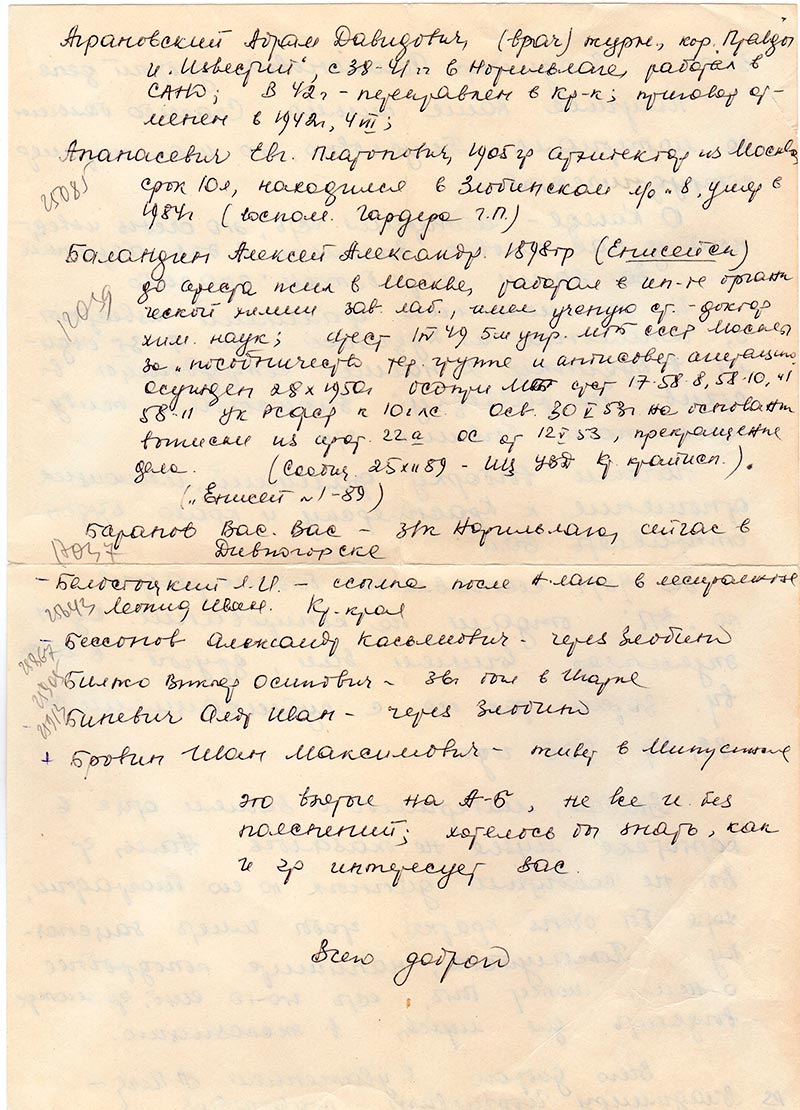 Аграновский Абрам Давидович, (врач) журн., кор. Правды
и „Известий", с 38-41 гг в Норильлаге, работал в
САНО; В 42г - переправлен в Кр-к; приговор от-
менен в 1942г, 4 III;
Апанасевич Евг. Платонович, 1905 гр архитектор из Москвы,
25085
срок 10л, находился в Злобинском л/о „8, умер в
1984г (воспом. Гардера Г.П)
Баландин Алексей Александр. 1898 гр (Енисейск)
до ареста жил в Москве, работал в ин-те органи
ческой химии зав. лаб., имел ученую ст. - доктор
хим. наук; арест 49 5м упр. МГБ СССР Москвы
за „пособничество тер. группе и антисовет. агитацию.
осужден 28 X 1950г ОСО при МГБ 17-58-8, 58-10, ч1
58-11 УК РСФСР к 10г лс. Осв. 30 V 53г на основании
выписки из прот. 22а ОС от 12 V 53, прекращение
дела. (Сообщ. 25 XII 89 - ИЦ УВД Кр. крайисп.).
(„Енисей" №1-89)
Баранов Вас. Вас - з/к Норильлага, сейчас в
17037
Дивногорске
- Белостоцкий Л.И. - ссылка после лага в
25643 Леонид Иван. Кр. края
- Бессонов Александр Касьянович - через Злобино
25867
Билжо Виктор Осипович -
- Биневич Алдр Иван - через Злобино
25913
+ Бровин Иван Максимович - живет в Минусинске
это взятые на А-Б, не все и без
пояснений; хотелось бы знать, как
и гр интересует вас.
Всего доброго